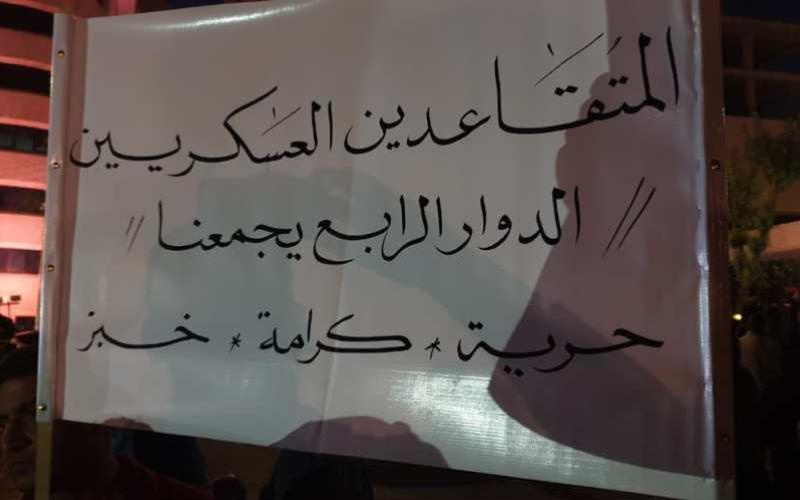 المتقاعدين العسكريين
// الدوار الرابع يجمعنا //
حرية * كرامة * خبز